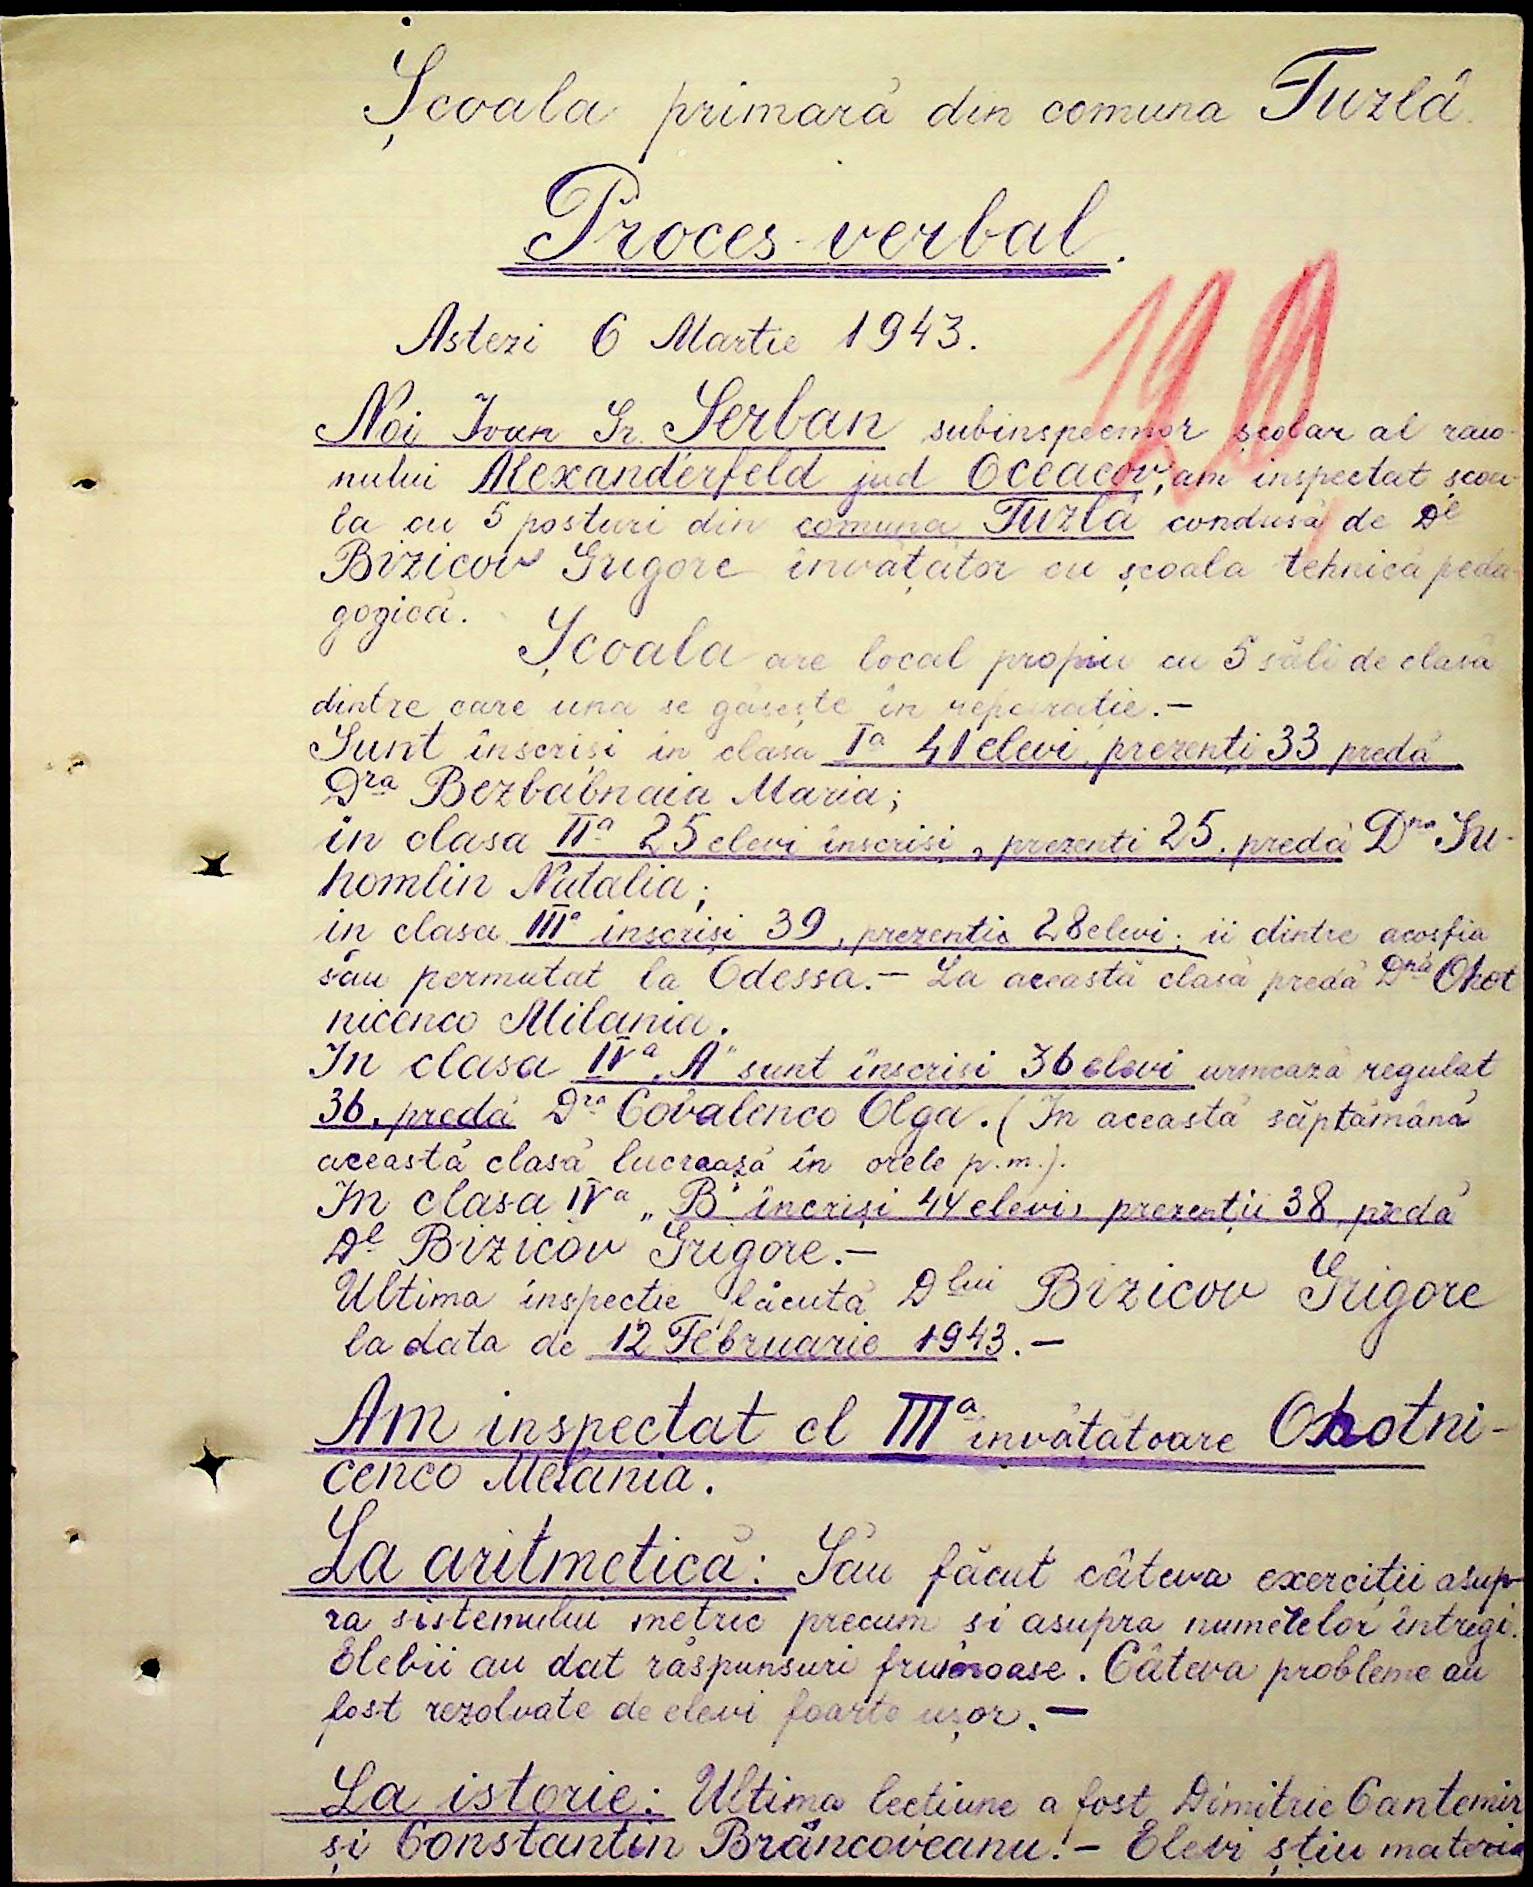 Școala primară din comuna Tuzlă.
Proces-verbal.
Astezi 6 Martie 1943.
Noi Ivan Gr. Serban subinspector școlar al raio-
nului Alexanderfeld jud Oceacov, am inspectat școa-
la cu 5 posturi din comuna Tuzlă condusă de Dl
Bizicov Grigore învățător cu școala tehnică peda-
gogică.
Școala are local propiu cu 5 săli de clasă
dintre care una se găsește în reperație.—
Sunt înscriși in clasa Ia 41 elevi, prezenți 33 predă
Dra Bezbabnaia Maria;
in clasa IIa 25 elevi înscriși, prezenti 25, predă Dna Su-
homlin Natalia;
in clasa IIIa inscriși 39, prezentis 28 elevi; ii dintre acosfia
său permutat la Odessa.— La această clasă predă Dnă Ohot
nicenco Milania.
In clasa IVa „A" sunt înscrisi 36 elevi urmează regulat
36, predă Dra Covalenco Olga. (In această săptămână
această clasă lucrează în orele p.m.).
In clasa IVa „B" încriși 44 elevi, prezenții 38, predă
Dl Bizicov Grigore.—
Ultima inspecție făcută Dlui Bizicov Grigore
la data de 12 Februarie 1943.—
Am inspectat cl IIIa învățătoare Ohotni-
cenco Melania.
La aritmetică: Său făcut câteva exerciții asup-
ra sistemului metric precum si asupra numerelor întregi.
Elebii au dat răspunsuri frumoase. Câteva probleme au
fost rezolvate de elevi foarte ușor.—
La istorie: Ultima lectiune a fost Dimitrie Cantemir
și Constantin Brâncoveanu.— Elevi știu materia